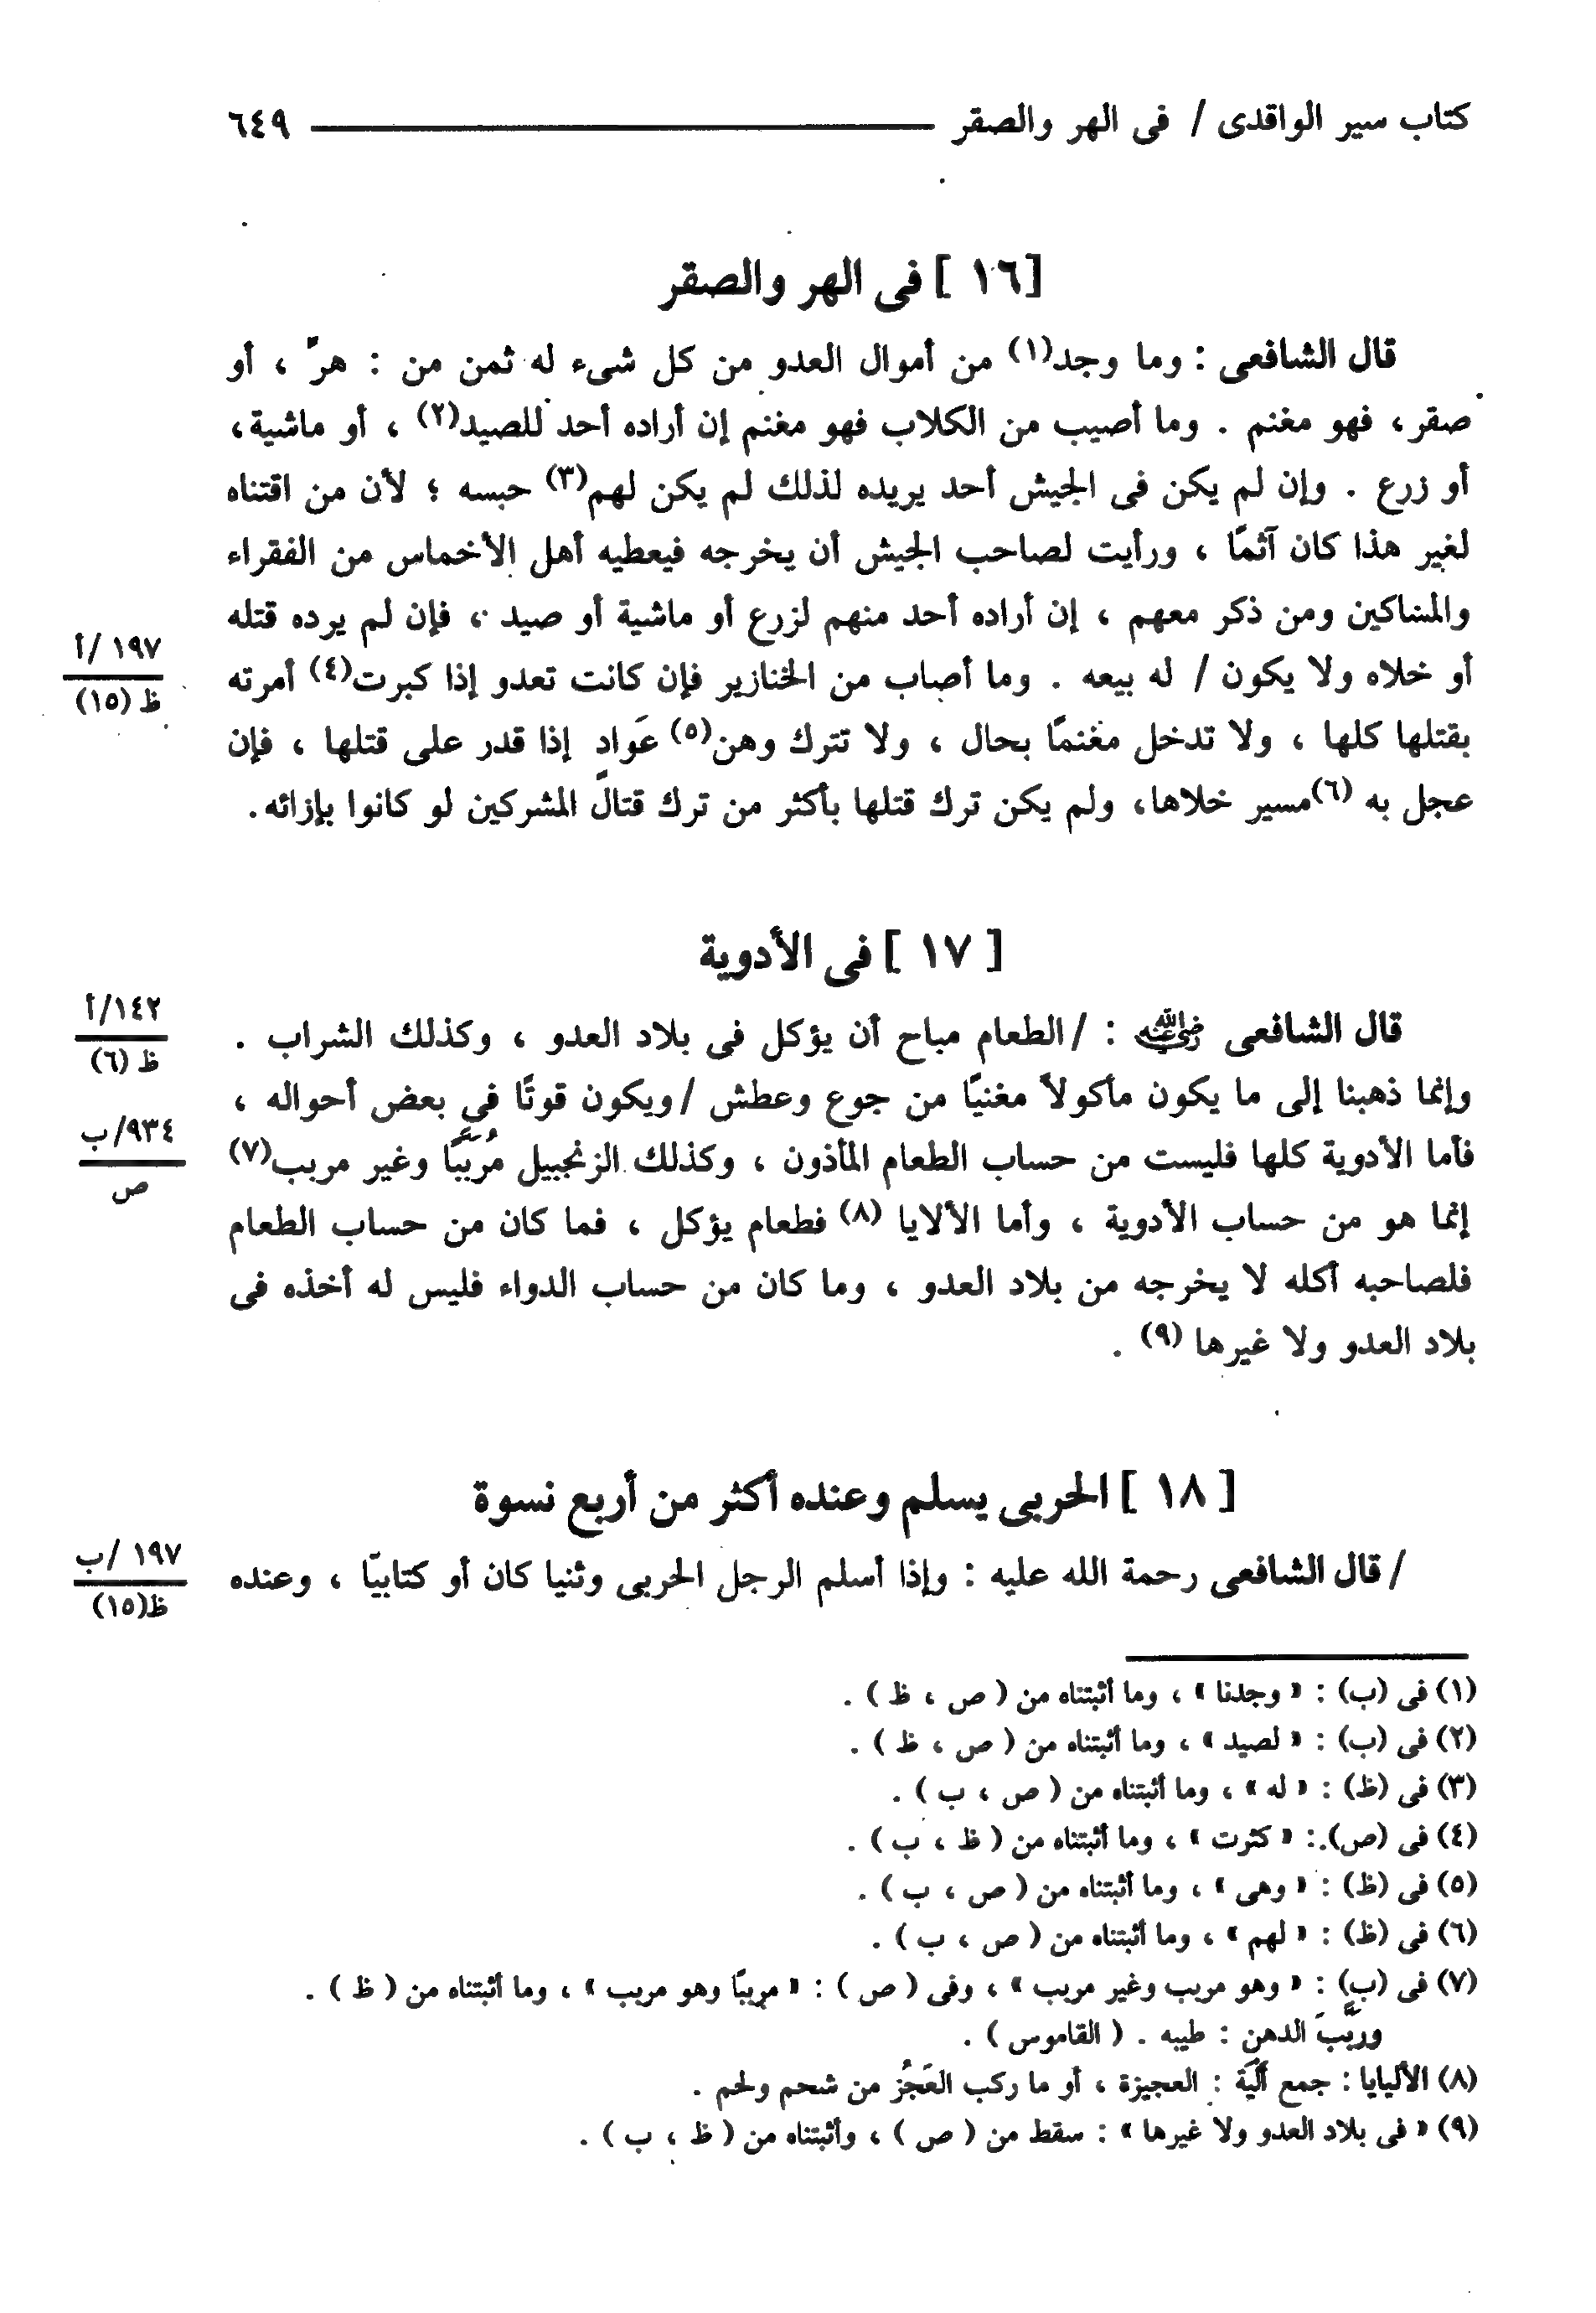 كتاب سير الواقدى / فى الهر والصقر ٦٤٩
[١٦ ] فى الهر والصقر
قال الشافعى : وما وجد(١) من أموال العدو من كل شىء له ثمن من : هرّ ، أو
صقر ، فهو مغنم . وما أصيب من الكلاب فهو مغنم إن أراده أحد للصيد(٢) ، أو ماشية،
أو زرع . وإن لم يكن فى الجيش أحد يريده لذلك لم يكن لهم(٣) حبسه ؛ لأن من اقتناه
لغير هذا كان آثمًا ، ورأيت لصاحب الجيش أن يخرجه فيعطيه أهل الأخماس من الفقراء
والمساكين ومن ذكر معهم ، إن أراده أحد منهم لزرع أو ماشية أو صيد ، فإن لم يرده قتله
١٩٧ /أ
أو خلاه ولا يكون / له بيعه . وما أصاب من الخنازير فإن كانت تعدو إذا كبرت(٤) أمرته
ظ (١٥)
بقتلها كلها ، ولا تدخل مغنمًا بحال ، ولا تترك وهن(٥) عَوادٍ إذا قدر على قتلها ، فإن
عجل به (٦)مسير خلاها، ولم يكن ترك قتلها بأكثر من ترك قتال المشركين لو كانوا بإزائه.
[ ١٧ ] فى الأدوية
١٤٢/أ
قال الشافعى رضي الله عنه : /الطعام مباح أن يؤكل فى بلاد العدو ، وكذلك الشراب .
ظ (٦)
وإنما ذهبنا إلى ما يكون مأكولاً مغنيًا من جوع وعطش /ويكون قوتًا في بعض أحواله ،
٩٣٤/ب
فأما الأدوية كلها فليست من حساب الطعام المأذون ، وكذلك الزنجبيل مُرَبَّبًا وغير مربب(٧)
ص
إنما هو من حساب الأدوية ، وأما الألايا (٨) فطعام يؤكل ، فما كان من حساب الطعام
فلصاحبه أكله لا يخرجه من بلاد العدو ، وما كان من حساب الدواء فليس له أخذه فى
بلاد العدو ولا غيرها (٩) .
[ ١٨ ] الحربى يسلم وعنده أكثر من أربع نسوة
١٩٧ /ب
/ قال الشافعى رحمة الله عليه : وإذا أسلم الرجل الحربى وثنيا كان أو كتابيّا ، وعنده
ظ(١٥)
(١) فى (ب) : « وجدنا » ، وما أثبتناه من ( ص ، ظ ) .
(٢) فى (ب) : « لصيد » ، وما أثبتناه من ( ص ، ظ ) .
(٣) فى (ظ) : « له » ، وما أثبتناه من ( ص ، ب ) .
(٤) فى (ص) : « كثرت » ، وما أثبتناه من ( ظ ، ب ) .
(٥) فى (ظ) : « وهى » ، وما أثبتناه من ( ص ، ب ) .
(٦) فى (ظ) : « لهم » ، وما أثبتناه من ( ص ، ب ) .
(٧) فى (ب) : « وهو مربب وغير مربب » ، وفى ( ص ) : « مرببًا وهو مربب » ، وما أثبتناه من ( ظ ) .
وربَّبَ الدهن : طيبه . ( القاموس ) .
(٨) الأليايا : جمع ألْيَة : العجيزة ، أو ما ركب العَجُز من شحم ولحم .
(٩) « فى بلاد العدو ولا غيرها » : سقط من ( ص ) ، وأثبتناه من ( ظ ، ب ) .